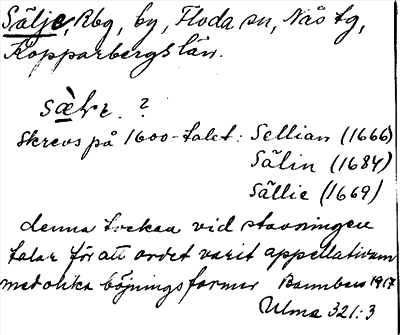 Sälje, Rbg, by, Floda sn, Nås tg,
Kopparbergs län.
?
Skrevs på 1600-talet: Sellian (1666)
Sälin (1684)
Sällie (1669)
denna tvekan vid stavningen
talar för att ordet varit appellativum
med olika böjningsformer 1917
Ulma 321:3